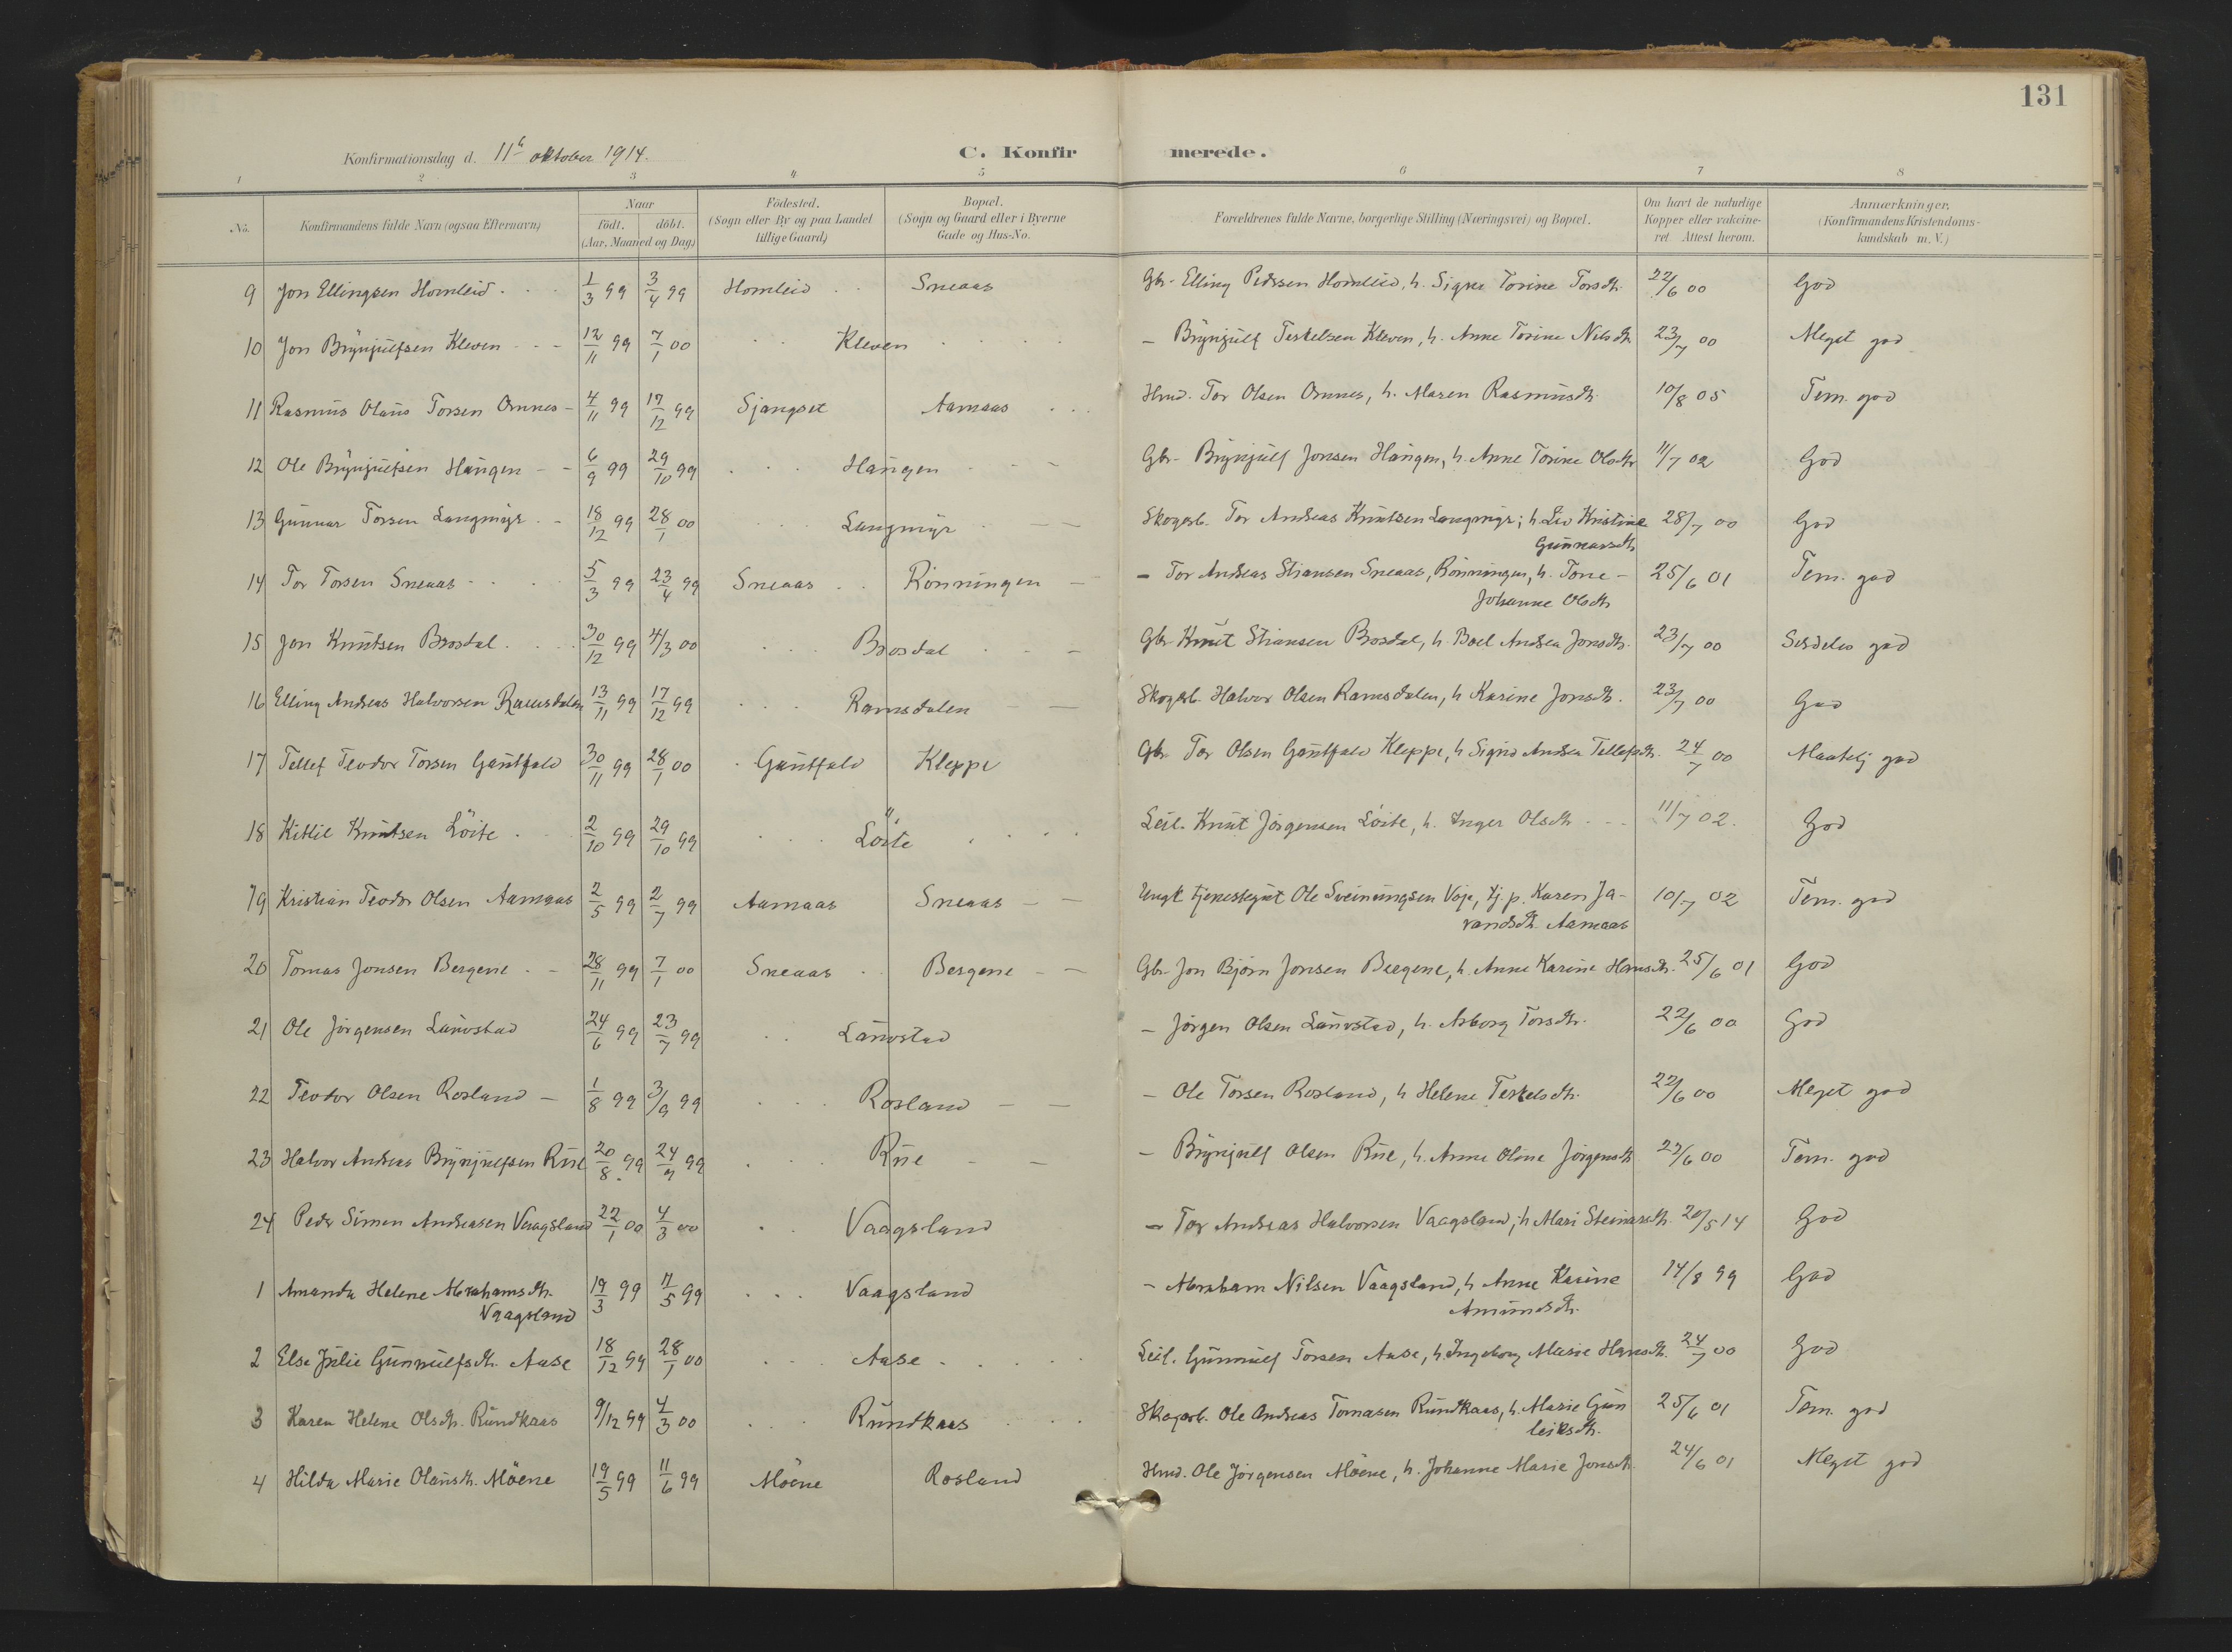 131
Konfirmationsdag d. 11te oktober 1914.
C. Konfirmerede.
1 2 3 4 5 6 7 8
No. Konfirmandens fulde Navn (ogsaa Efternavn) Naar födt. döbt. (Aar, Maaned og Dag) Födested. (Sogn eller By og paa Landet tillige Gaard) Bopæl. (Sogn og Gaard eller i Byerne Gade og Hus-No. Forældrenes fulde Navne, borgerlige Stilling (Næringsvei) og Bopæl. Om havt de naturlige Kopper eller vakcineret Attest herom. Anmærkninger. (Konfirmandens Kristendomskundskab m. V.)
9 Jon Ellingsen Homleid 1/3 99 3/4 99 Homleid Sneaas Gbr. Elling Pedersen Homleid, h. Signe Torine Torsdtr. 22/6 00 God
10 Jon Brynjulfsen Kleven 12/11 99 7/1 00 Kleven - Brynjulf Terkelsen Kleven, h. Anne Torine Nilsdtr 23/7 00 Meget god
11 Rasmus Olaus Torsen Omnes 4/11 99 17/12 99 Sjangset Aamaas Hmd. Tor Olsen Omnes, h. Maren Rasmusdtr. 10/8 05 Tem. god
12 Ole Brynjulfsen Haugen 6/9 99 29/10 99 Haugen Gbr. Brynjulf Jonsen Haugen, h. Anne Torine Olsdtr 11/7 02 God
13 Gunnar Torsen Langmyr 18/12 99 28/1 00 Langmyr Skogarb. Tor Andreas Knutsen Langmyr; h. Liv Kristine Gunnarsdtr 28/7 00 God
14 Tor Torsen Sneaas 5/3 99 23/4 99 Sneaas Rönningen - Tor Andreas Stiansen Sneaas, Rönningen, h. Tone Johanne Olsdtr 25/6 01 Tem. god
15 Jon Knutsen Brosdal 30/12 99 4/3 00 Brosdal Gbr. Knut Stiansen Brosdal, h. Boel Andrea Jonsdtr. 23/7 00 Særdeles god
16 Elling Andreas Halvorsen Ramsdalen 13/11 99 17/12 99 Ramsdalen Skogarb. Halvor Olsen Ramsdalen, h Karine Jonsdtr. 23/7 00 God
17 Tellef Teodor Torsen Gautfald 30/11 99 28/1 00 Gautfald Kleppe Gbr. Tor Olsen Gautfald Kleppe, h Signe Andrea Tellefsdtr. 24/7 00 Maatelig god
18 Kittil Knutsen Löite 2/10 99 29/10 99 Löite Leil. Knut Jörgensen Löite, h. Inger Olsdtr 11/7 02. God
19 Kristian Teodor Olsen Aamaas 2/5 99 2/7 99 Aamaas Sneaas Ungk tjenestegut Ole Sveinungsen Voje, tj. p. Karen Ja-
vandsdtr. Aamaas 10/7 02 Tem. god
20 Tomas Jonsen Bergene 28/11 99 7/1 00 Sneaas Bergene Gbr. Jon Bjørn Jonsen Bergene, h. Anne Karine Hansdtr. 25/6 01 God
21 Ole Jörgensen Lauvstad 24/6 99 23/7 99 Lauvstad - Jörgen Olsen Lauvstad, h. Asborg Torsdtr. 22/6 00 God
22 Teodor Olsen Rosland 1/8 99 3/9 99 Rosland - Ole Torsen Rosland, h Helene Terkelsdtr. 22/6 00 Meget god
23 Halvor Andreas Brynjulfsen Rue 20/8 99 24/9 99 Rue - Brynjulf Olsen Rue, h. Anne Oline Jörgensdtr 22/6 00 Tem. god
24 Peder Simon Andreasen Vaagsland 22/1 00 4/3 00 Vaagsland - Tor Andreas Halvorsen Vaagsland, h Mari Steinarsdtr. 20/5 14 God
1 Amanda Helene Abrahamsdtr. Vaagsland 19/3 99 11/5 99 Vaagsland - Abraham Nilsen Vaagsland, h Anne Karine Amundsdtr. 14/8 99 God
2 Else Julie Gunnulfsdtr. Aase 18/12 99 28/1 00 Aase Leil. Gunnulf Torsen Aase, h. Ingeborg Marie Hansdtr. 24/7 00 God
3 Karen Helene Olsdtr. Rundkaas 9/12 99 4/3 00 Rundkaas Skogarb. Ole Andreas Tomasen Rundkaas, h. Marie Gun
leiksdtr. 25/6 01 Tem. god
4 Hilda Marie Olausdtr. Möene 19/5 99 11/6 99 Möene Rosland Hmd. Ole Jörgensen Möene, h. Johanne Marie Jonsdtr. 24/6 01 Meget god